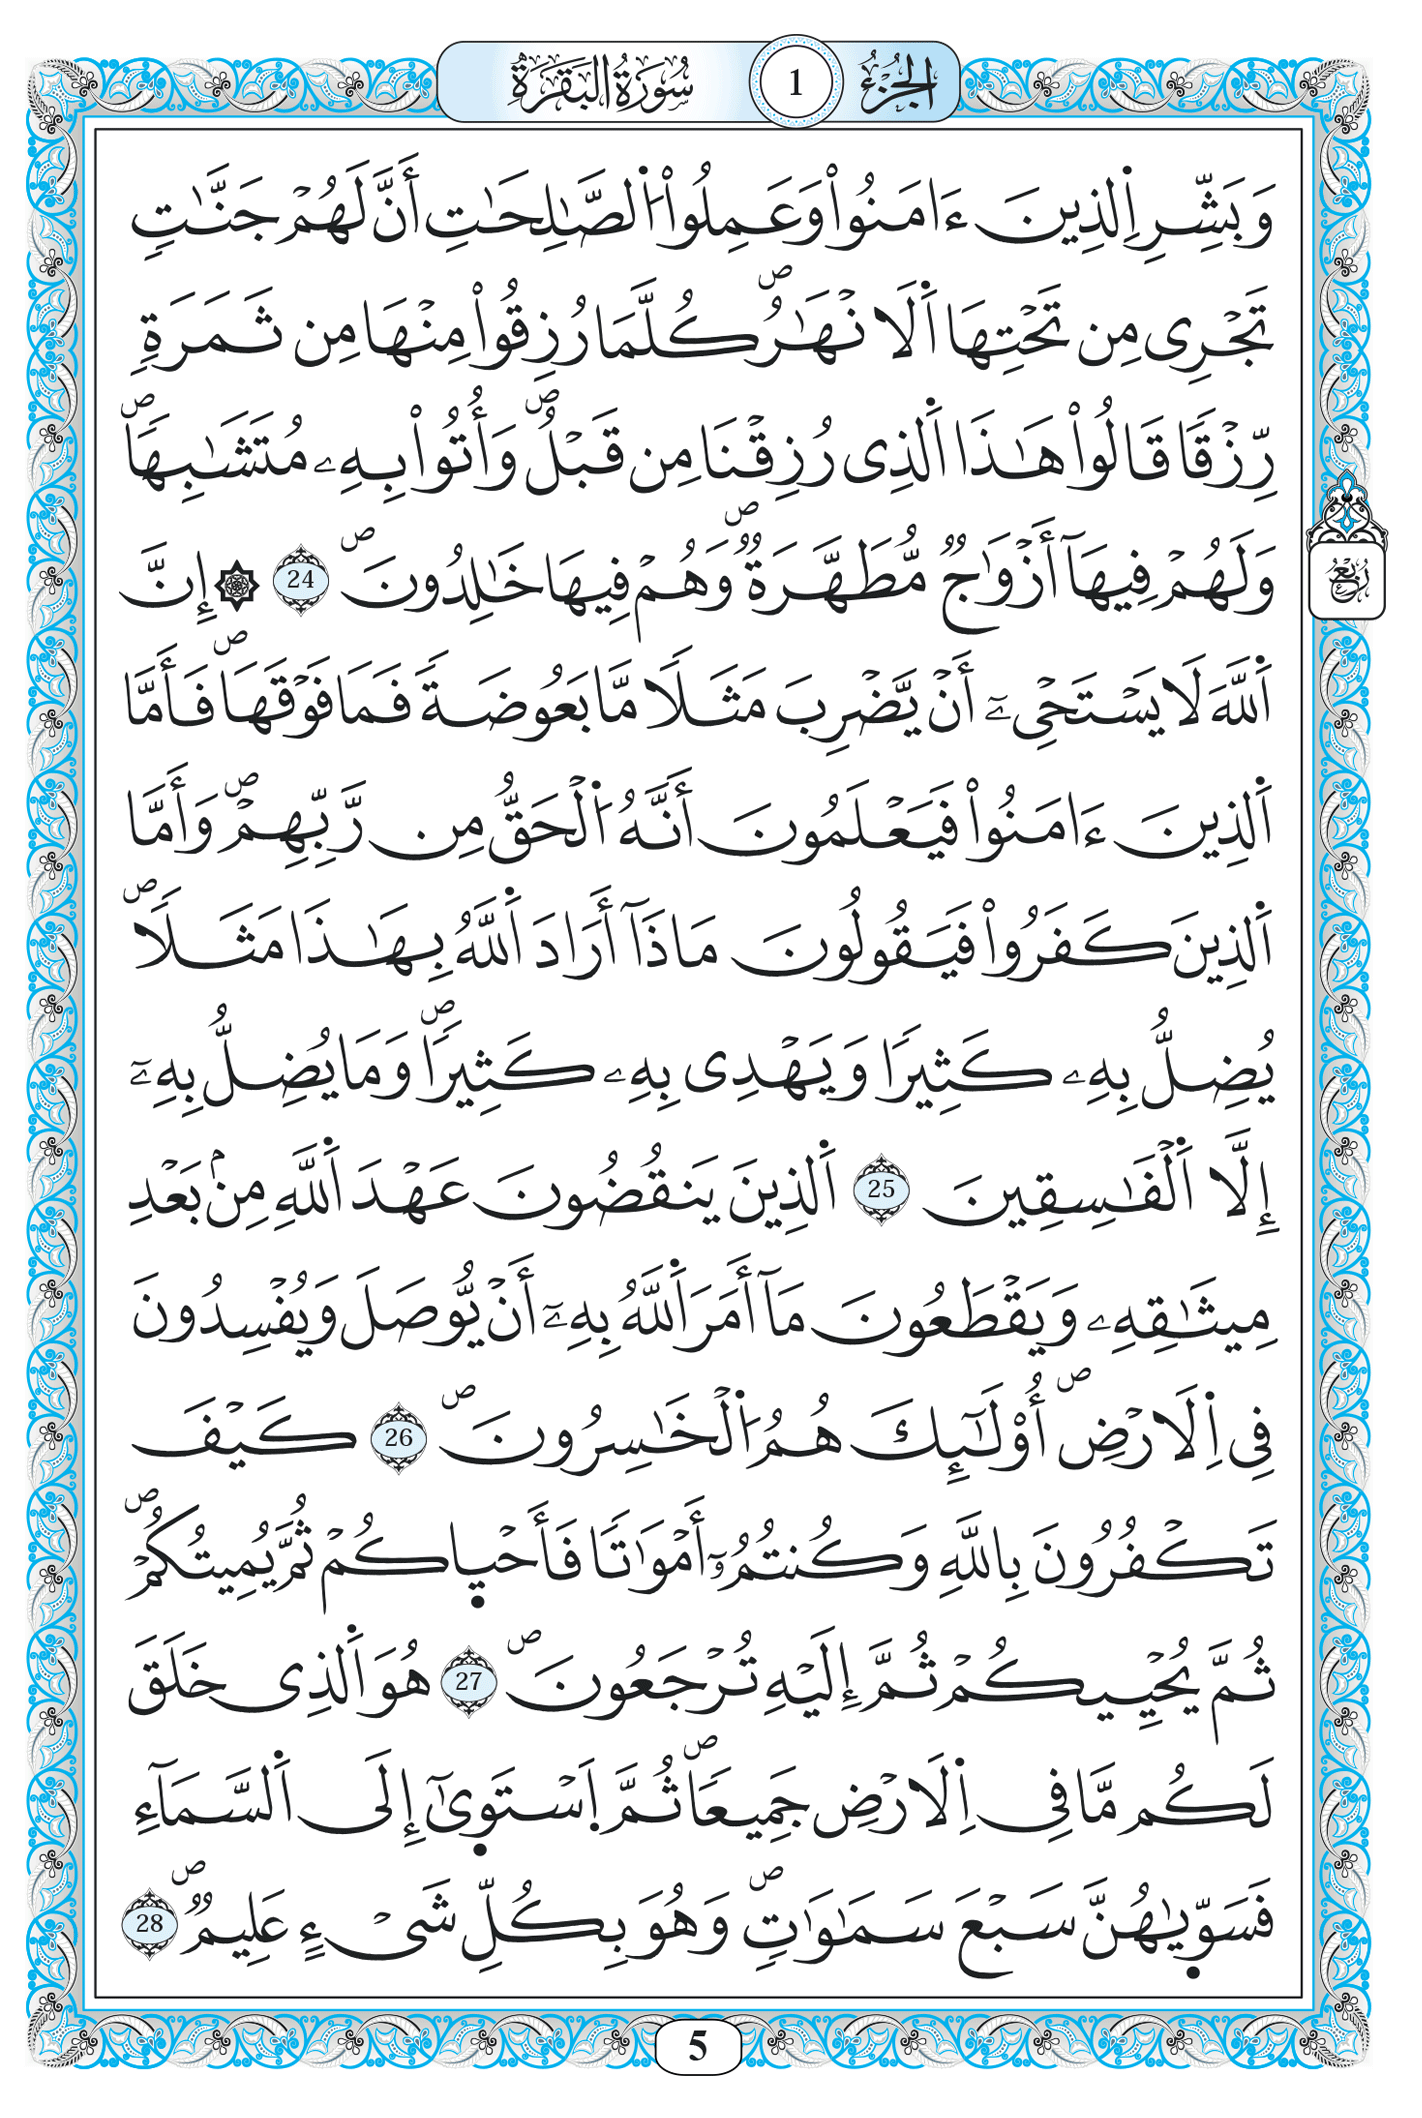 سُورَةُ البَقَرَةِ 1 الجُزْءُ
وَبَشِّرِ اِ۬لذِينَ ءَامَنُواْ وَعَمِلُواْ اُ۬لصَّٰلِحَٰتِ أَنَّ لَهُمْ جَنَّٰتٖ
تَجْرِے مِن تَحْتِهَا اَ۬لَانْهَٰرُۖ كُلَّمَا رُزِقُواْ مِنْهَا مِن ثَمَرَةٖ
رِّزْقاٗ قَالُواْ هَٰذَا اَ۬لذِے رُزِقْنَا مِن قَبْلُۖ وَأُتُواْ بِهِۦ مُتَشَٰبِهاٗۖ
وَلَهُمْ فِيهَآ أَزْوَٰجٞ مُّطَهَّرَةٞۖ وَهُمْ فِيهَا خَٰلِدُونَۖ 24 ۞ إِنَّ
اَ۬للَّهَ لَا يَسْتَحْيِۦٓ أَنْ يَّضْرِبَ مَثَلاٗ مَّا بَعُوضَةٗ فَمَا فَوْقَهَاۖ فَأَمَّا
اَ۬لذِينَ ءَامَنُواْ فَيَعْلَمُونَ أَنَّهُ اُ۬لْحَقُّ مِن رَّبِّهِمْۖ وَأَمَّا
اَ۬لذِينَ كَفَرُواْ فَيَقُولُونَ مَاذَآ أَرَادَ اَ۬للَّهُ بِهَٰذَا مَثَلاٗۖ
يُضِلُّ بِهِۦ كَثِيراٗ وَيَهْدِے بِهِۦ كَثِيراٗۖ وَمَا يُضِلُّ بِهِۦٓ
إِلَّا اَ۬لْفَٰسِقِينَ 25 اَ۬لذِينَ يَنقُضُونَ عَهْدَ اَ۬للَّهِ مِنۢ بَعْدِ
مِيثَٰقِهِۦ وَيَقْطَعُونَ مَآ أَمَرَ اَ۬للَّهُ بِهِۦٓ أَنْ يُّوصَلَ وَيُفْسِدُونَ
فِے اِ۬لَارْضِۖ أُوْلَٰٓئِكَ هُمُ اُ۬لْخَٰسِرُونَۖ 26 كَيْفَ
تَكْفُرُونَ بِاللَّهِ وَكُنتُمُۥٓ أَمْوَٰتاٗ فَأَحْيٜاكُمْ ثُمَّ يُمِيتُكُمْۖ
ثُمَّ يُحْيِيكُمْ ثُمَّ إِلَيْهِ تُرْجَعُونَۖ 27 هُوَ اَ۬لذِے خَلَقَ
لَكُم مَّا فِے اِ۬لَارْضِ جَمِيعاٗۖ ثُمَّ اَ۪سْتَوٜىٰٓ إِلَى اَ۬لسَّمَآءِ
فَسَوّٜىٰهُنَّ سَبْعَ سَمَٰوَٰتٖۖ وَهُوَ بِكُلِّ شَےْءٍ عَلِيمٞۖ 28
رُبُعْ
5